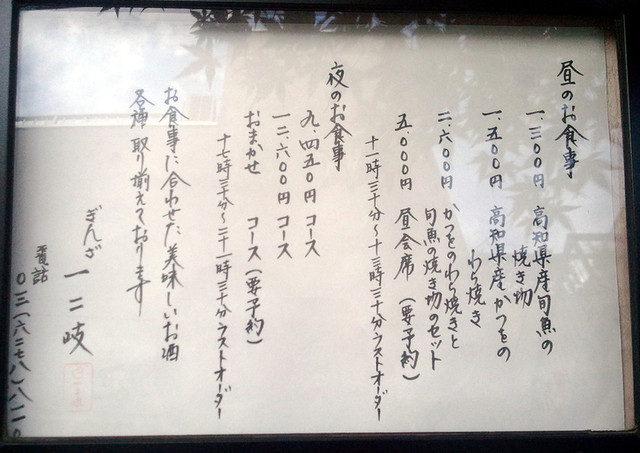 昼のお食事
一、三〇〇円 高知県産旬魚の
焼き切
一、五〇〇円 高知県産かつをの
わら焼き
二、六〇〇円 かつをのわら焼きと
旬魚の焼き切のセット
五、〇〇〇円 昼会席(要予約)
十一時三十分~十三時三十分ラストオーダー
夜のお食事
九、四五〇円 コース
一二、六〇〇円 コース
おまかせ コース(要予約)
十七時三十分~二十一時三十分ラストオーダー
お食事に合わせた美味しいお酒
各種取り揃えております
ぎんざ 一二岐
電話
〇三(六二七八)八一一〇